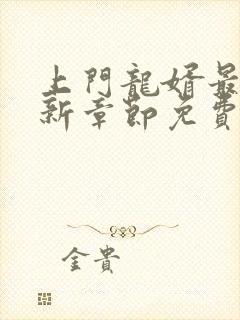 上門龍婿最
新章節免費
金貴